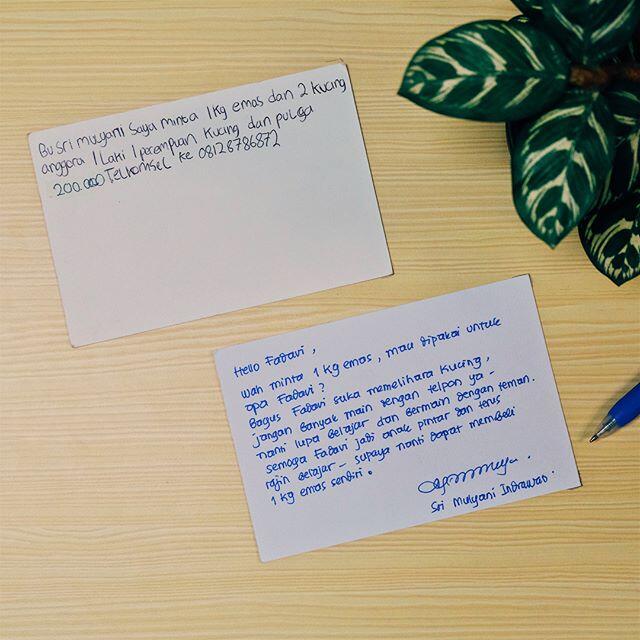 Bu Sri mulyani Saya minta 1 kg emas dan 2 kucing
anggora 1 Laki 1 perempuan kucing dan pulsa
200.000 Telkomsel ke 08128786872
Hello Fadavi,
wah minta 1 kg emas, mau dipakai untuk
apa Fadavi?
Bagus Fadavi suka memelihara kucing,
jangan banyak main dengan telpon ya -
nanti lupa belajar dan bermain dengan teman.
semoga Fadavi jadi anak pintar dan terus
rajin belajar - supaya nanti dapat membeli
1 kg emas sendiri.
Sri Mulyani Indrawati.